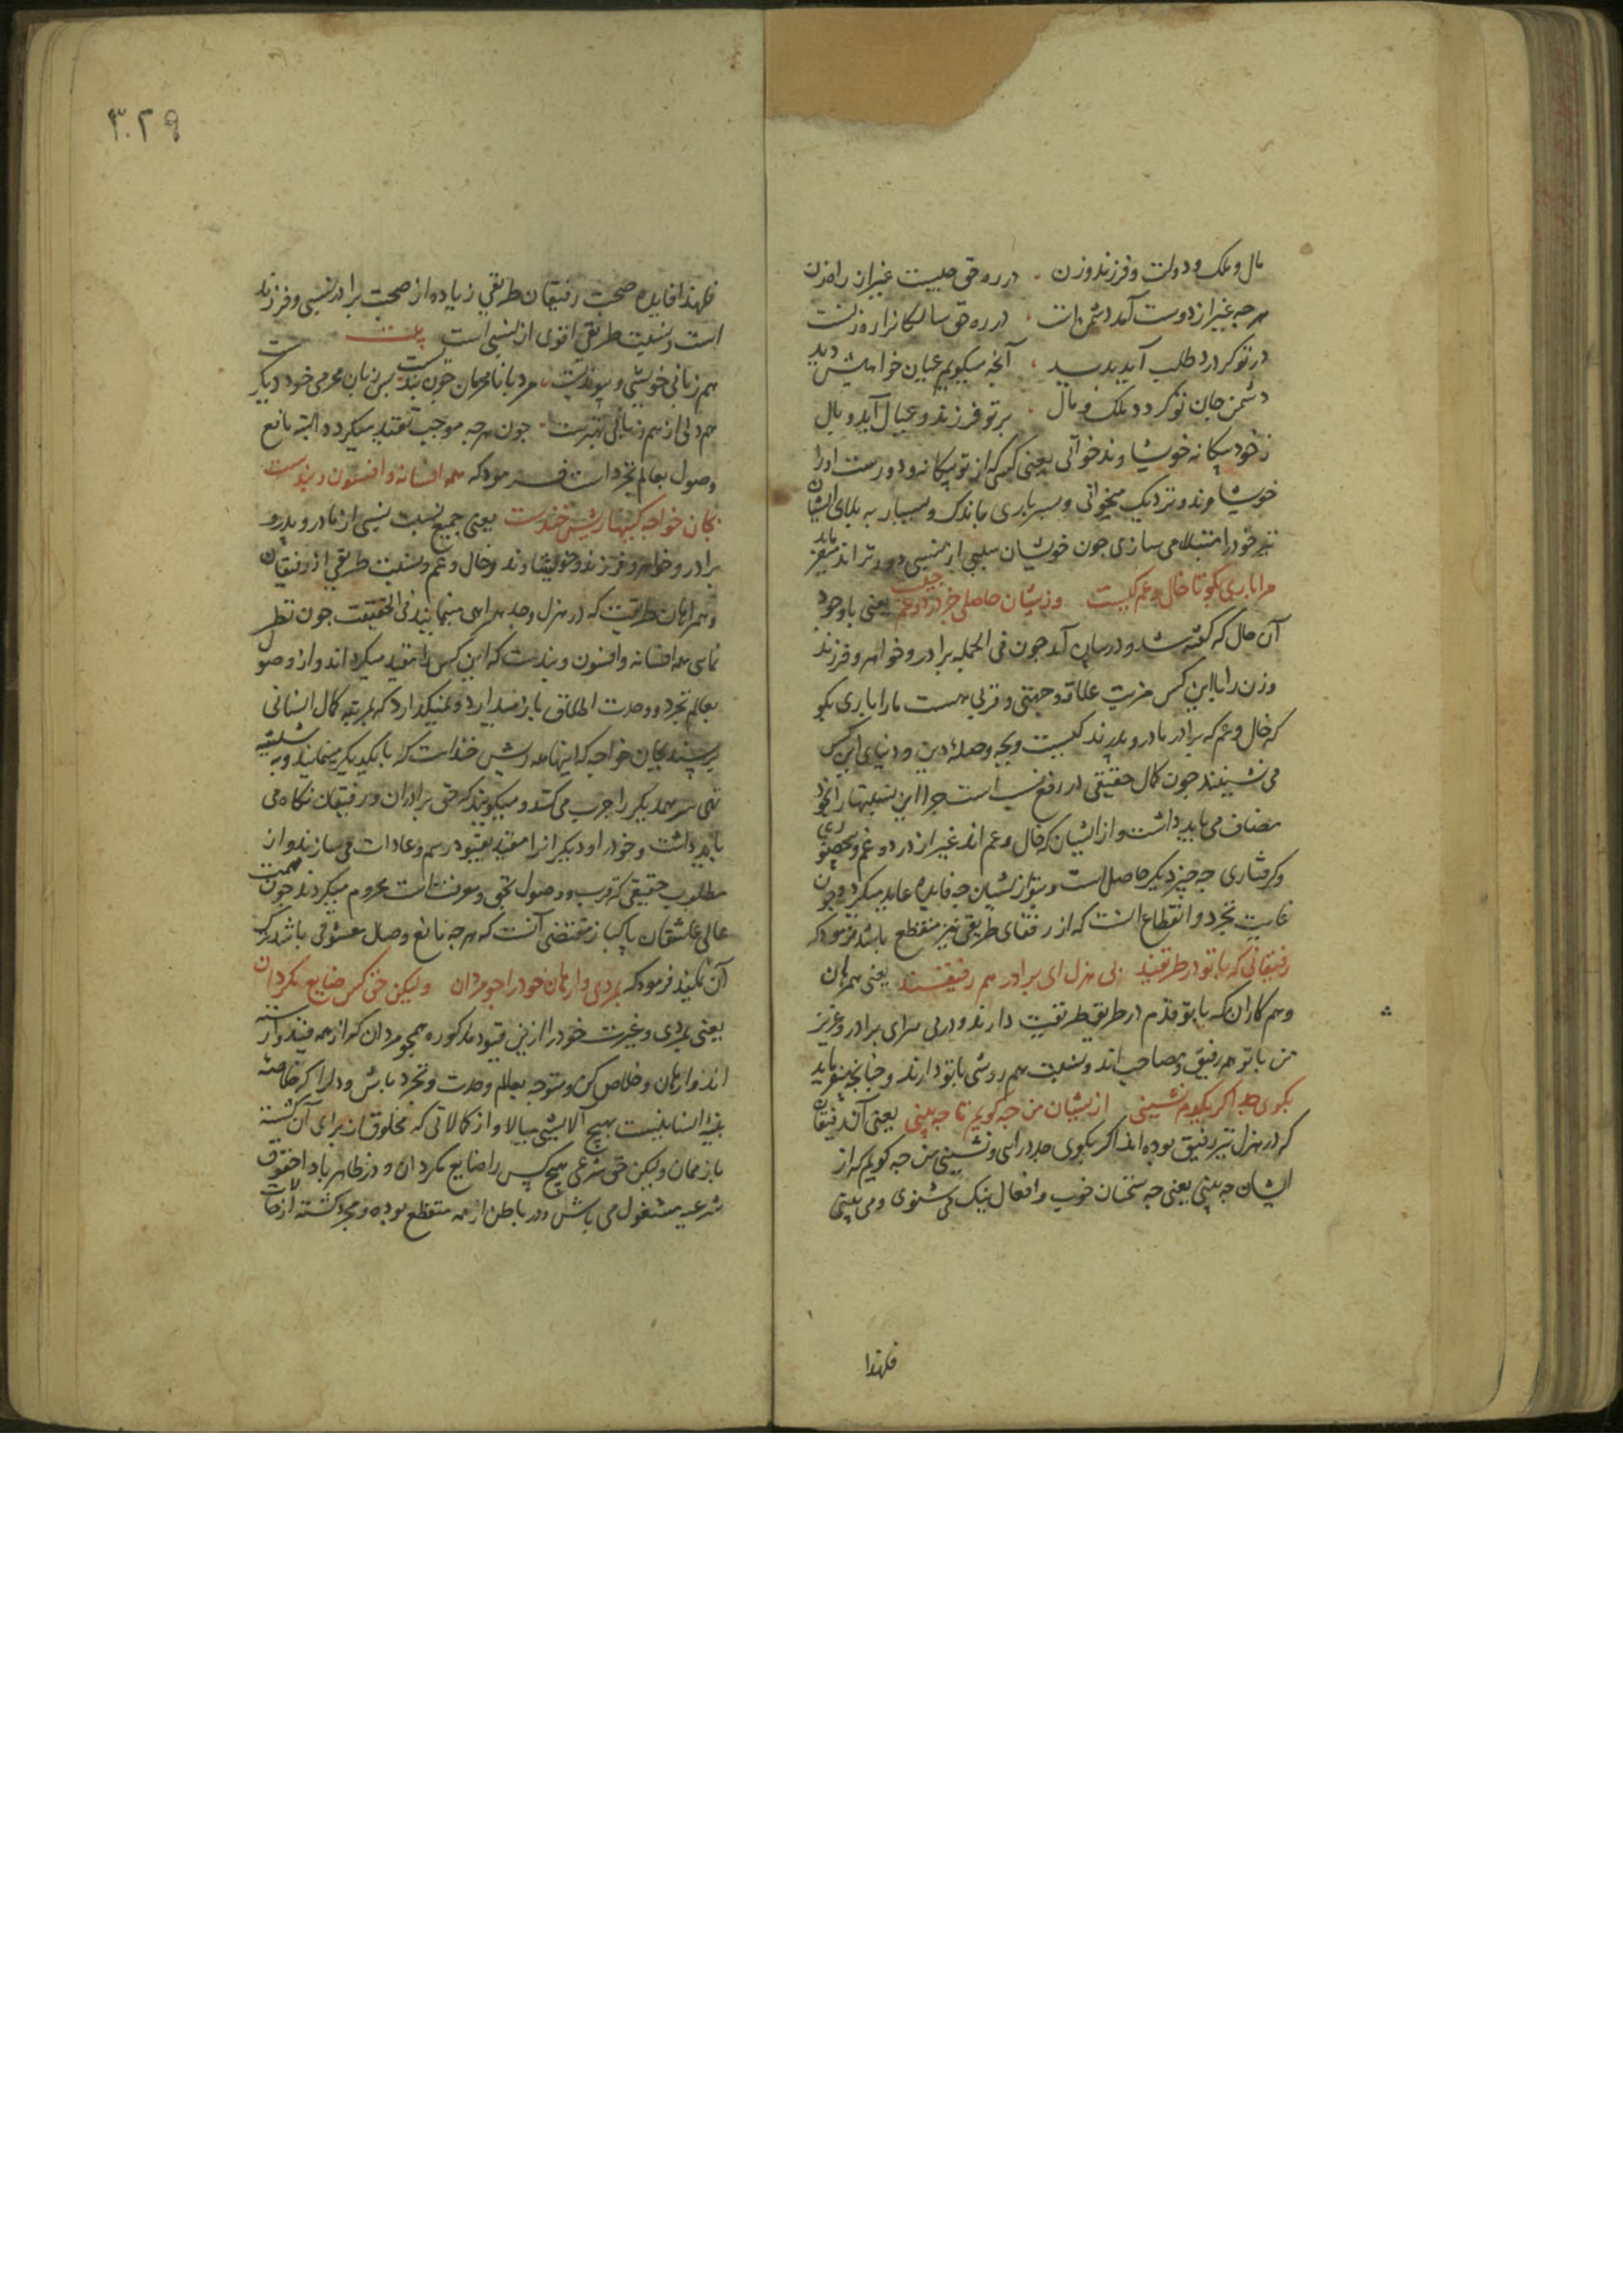 مال و ملک و دولت و فرزند و زن در ره حق چیست غیر از راهزن
هر چه غیر از دوست آمد دشمن است در ره حق سالکانرا رهزنست
در تو گر درد طلب آید پدید آنچه میگویم عیان خواهیش دید
دشمن جان تو گردد ملک و مال بر تو فرزند و عیال آید وبال
ز خود بیگانه خویشاوند خوانی یعنی کسی که از تو بیگانه و دورست او را
خویشاوند و نزدیک میخوانی و بسرباری باندک و بسیار به بلای ایشان
نیز خود را مبتلا می سازی چون خویشان سببی از نسبی دورتر اند میفرماید
مرا باری بگو تا خال و عم کیست وز ایشان حاصلی جز درد و غم چیست یعنی با وجود
آن حال که گفته شد و در میان آمد چون فی الجمله برادر و خواهر و فرزند
و زن را با این کس مزیت علاقه و جهتی و قربی هست مارا باری بگو
که خال و عم که برادر مادر و پدرند کیست و بچه وصله دین و دنیای این کس
می نشینند چون کمال حقیقی در رفع نسب است چرا این نسبتها را بخود
مضاف می باید داشت و از ایشان که خال و عم اند غیر از درد و غم و
و گرفتاری چه چیز دیگر حاصل است و بتو از ایشان چه فایده عاید میگردد و چون
غایت تجرد و انقطاع آنست که از رفقای طریقی نیز منقطع باشد فرمود که
رفیقانی که با تو در طریقند پی هزل ای برادر هم رفیقند یعنی همرهان
و هم کاران که با تو قدم در طریق طریقت دارند و در پی هزل ای برادر و عزیز
من با تو هم رفیق و مصاحب اند و نسبت هم روشی با تو دارند و چنانچه میفرماید
بکوی جد اگر یکدم نشینی از ایشان من چه گویم تا چه بینی یعنی آن رفیقان
که در هزل نیز رفیق بوده اند اگر بکوی جد درآیی و نشینی من چه گویم که از
ایشان چه بینی یعنی چه سخنان خوب و افعال نیک می شنوی و می بینی
فلهذا
۳۰۲۹
فلهذا فایده صحبت رفیقان طریقی زیاده از صحبت برادر نسبی و فرزند
است و نسبت طریقی اقوی از نسبی است بیت
هم زبانی خویشی و پیوندیست مرد با نامحرمان چون بندیست پس زبان محرمی خود دیگرست
هم دلی از هم زبانی بهترست چون هر چه موجب تقید میگردد البته مانع
وصول بعالم تجرد است فرمود که همه افسانه و افسون و بندست
بجان خواجه کینها ریش خندست یعنی جمیع نسبت نسبی از مادر و پدر و
برادر و خواهر و فرزند و خویشاوند و خال و عم و نسبت طریقی از رفیقان
و همراهان طریقت که در هزل و جد همراهی مینمایند فی الحقیقت چون نظر
نمایی همه افسانه و افسون و بندست که این کس را مقید میگرداند و از وصول
بعالم تجرد و وحدت اطلاق باز میدارد و نمیگذارد که بمرتبه کمال انسانی
برسند بجان خواجه که اینها همه ریش خند است که با یکدیگر مینمایند و به شیشه
تهی سر همدیگر را چرب می کنند و میگویند که حق برادران و رفیقان نگاه می
باید داشت و خود را و دیگرانرا مقید بقیود رسم و عادات می سازند و از
مطلوب حقیقی که قرب و وصول بحق و معرفتست محروم میگردند چون همت
عالی عاشقان پاکباز مقتضی آنست که هر چه مانع وصال معشوقی باشد ترک
آن نمایند فرمود که بمردی وارهان خود را چو مردان ولیکن حق کس ضایع مگردان
یعنی بمردی و غیرت خود را ازین قیود مذکوره همچو مردان که از همه قیدوارسته
اند وارهان و خلاص کن و متوجه بعالم وحدت و تجرد باش و دلرا که خاصه
بنیه انسانیست بهیچ آلایشی میالا و از کمالاتی که مخلوق از برای آن گشته
باز ممان ولیکن حق شرعی هیچ کس را ضایع مگردان و در ظاهر باداء حقوق
شرعیه مشغول می باش و در باطن از همه منقطع بوده و مجرد گشته از